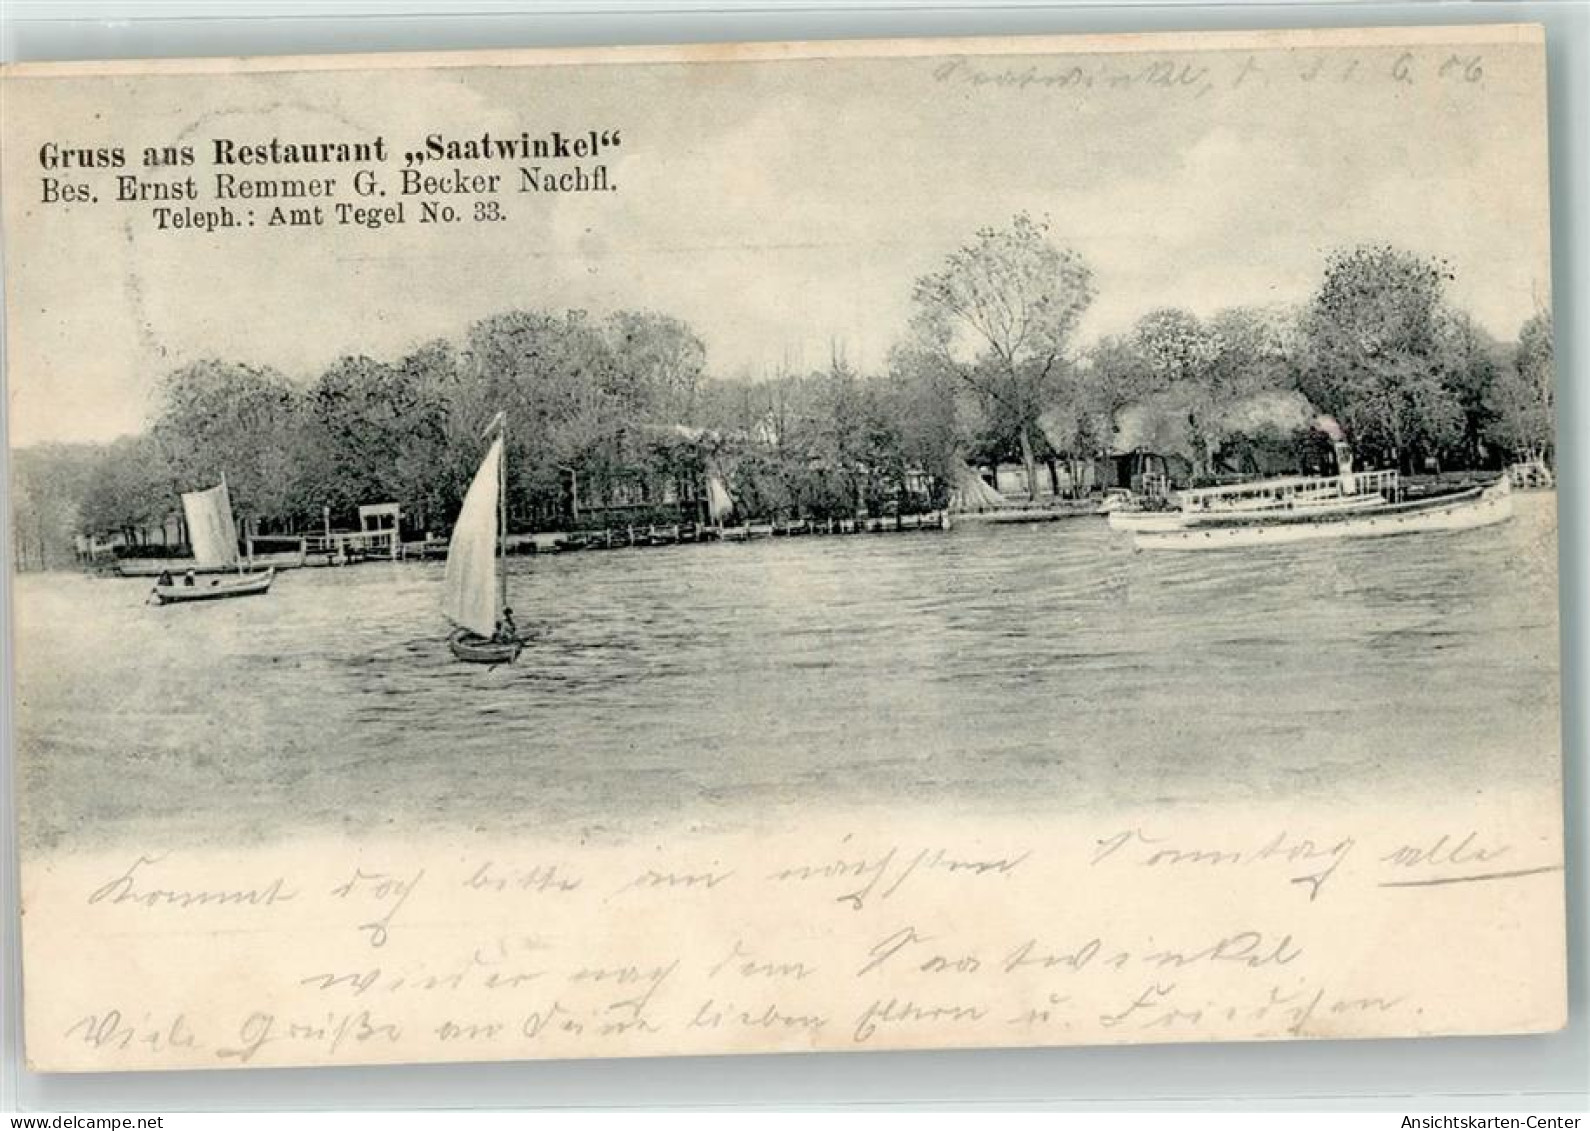 Saatwinkel, d. 31.6.06
Gruss aus Restaurant „Saatwinkel“
Bes. Ernst Remmer G. Becker Nachfl.
Teleph.: Amt Tegel No. 33.
Kommt doch bitte am nächsten Sonntag alle
wieder nach dem Saatwinkel
Viele Grüße an Deine lieben Eltern u. Friedchen.
delcampe.net
Ansichtskarten-Center